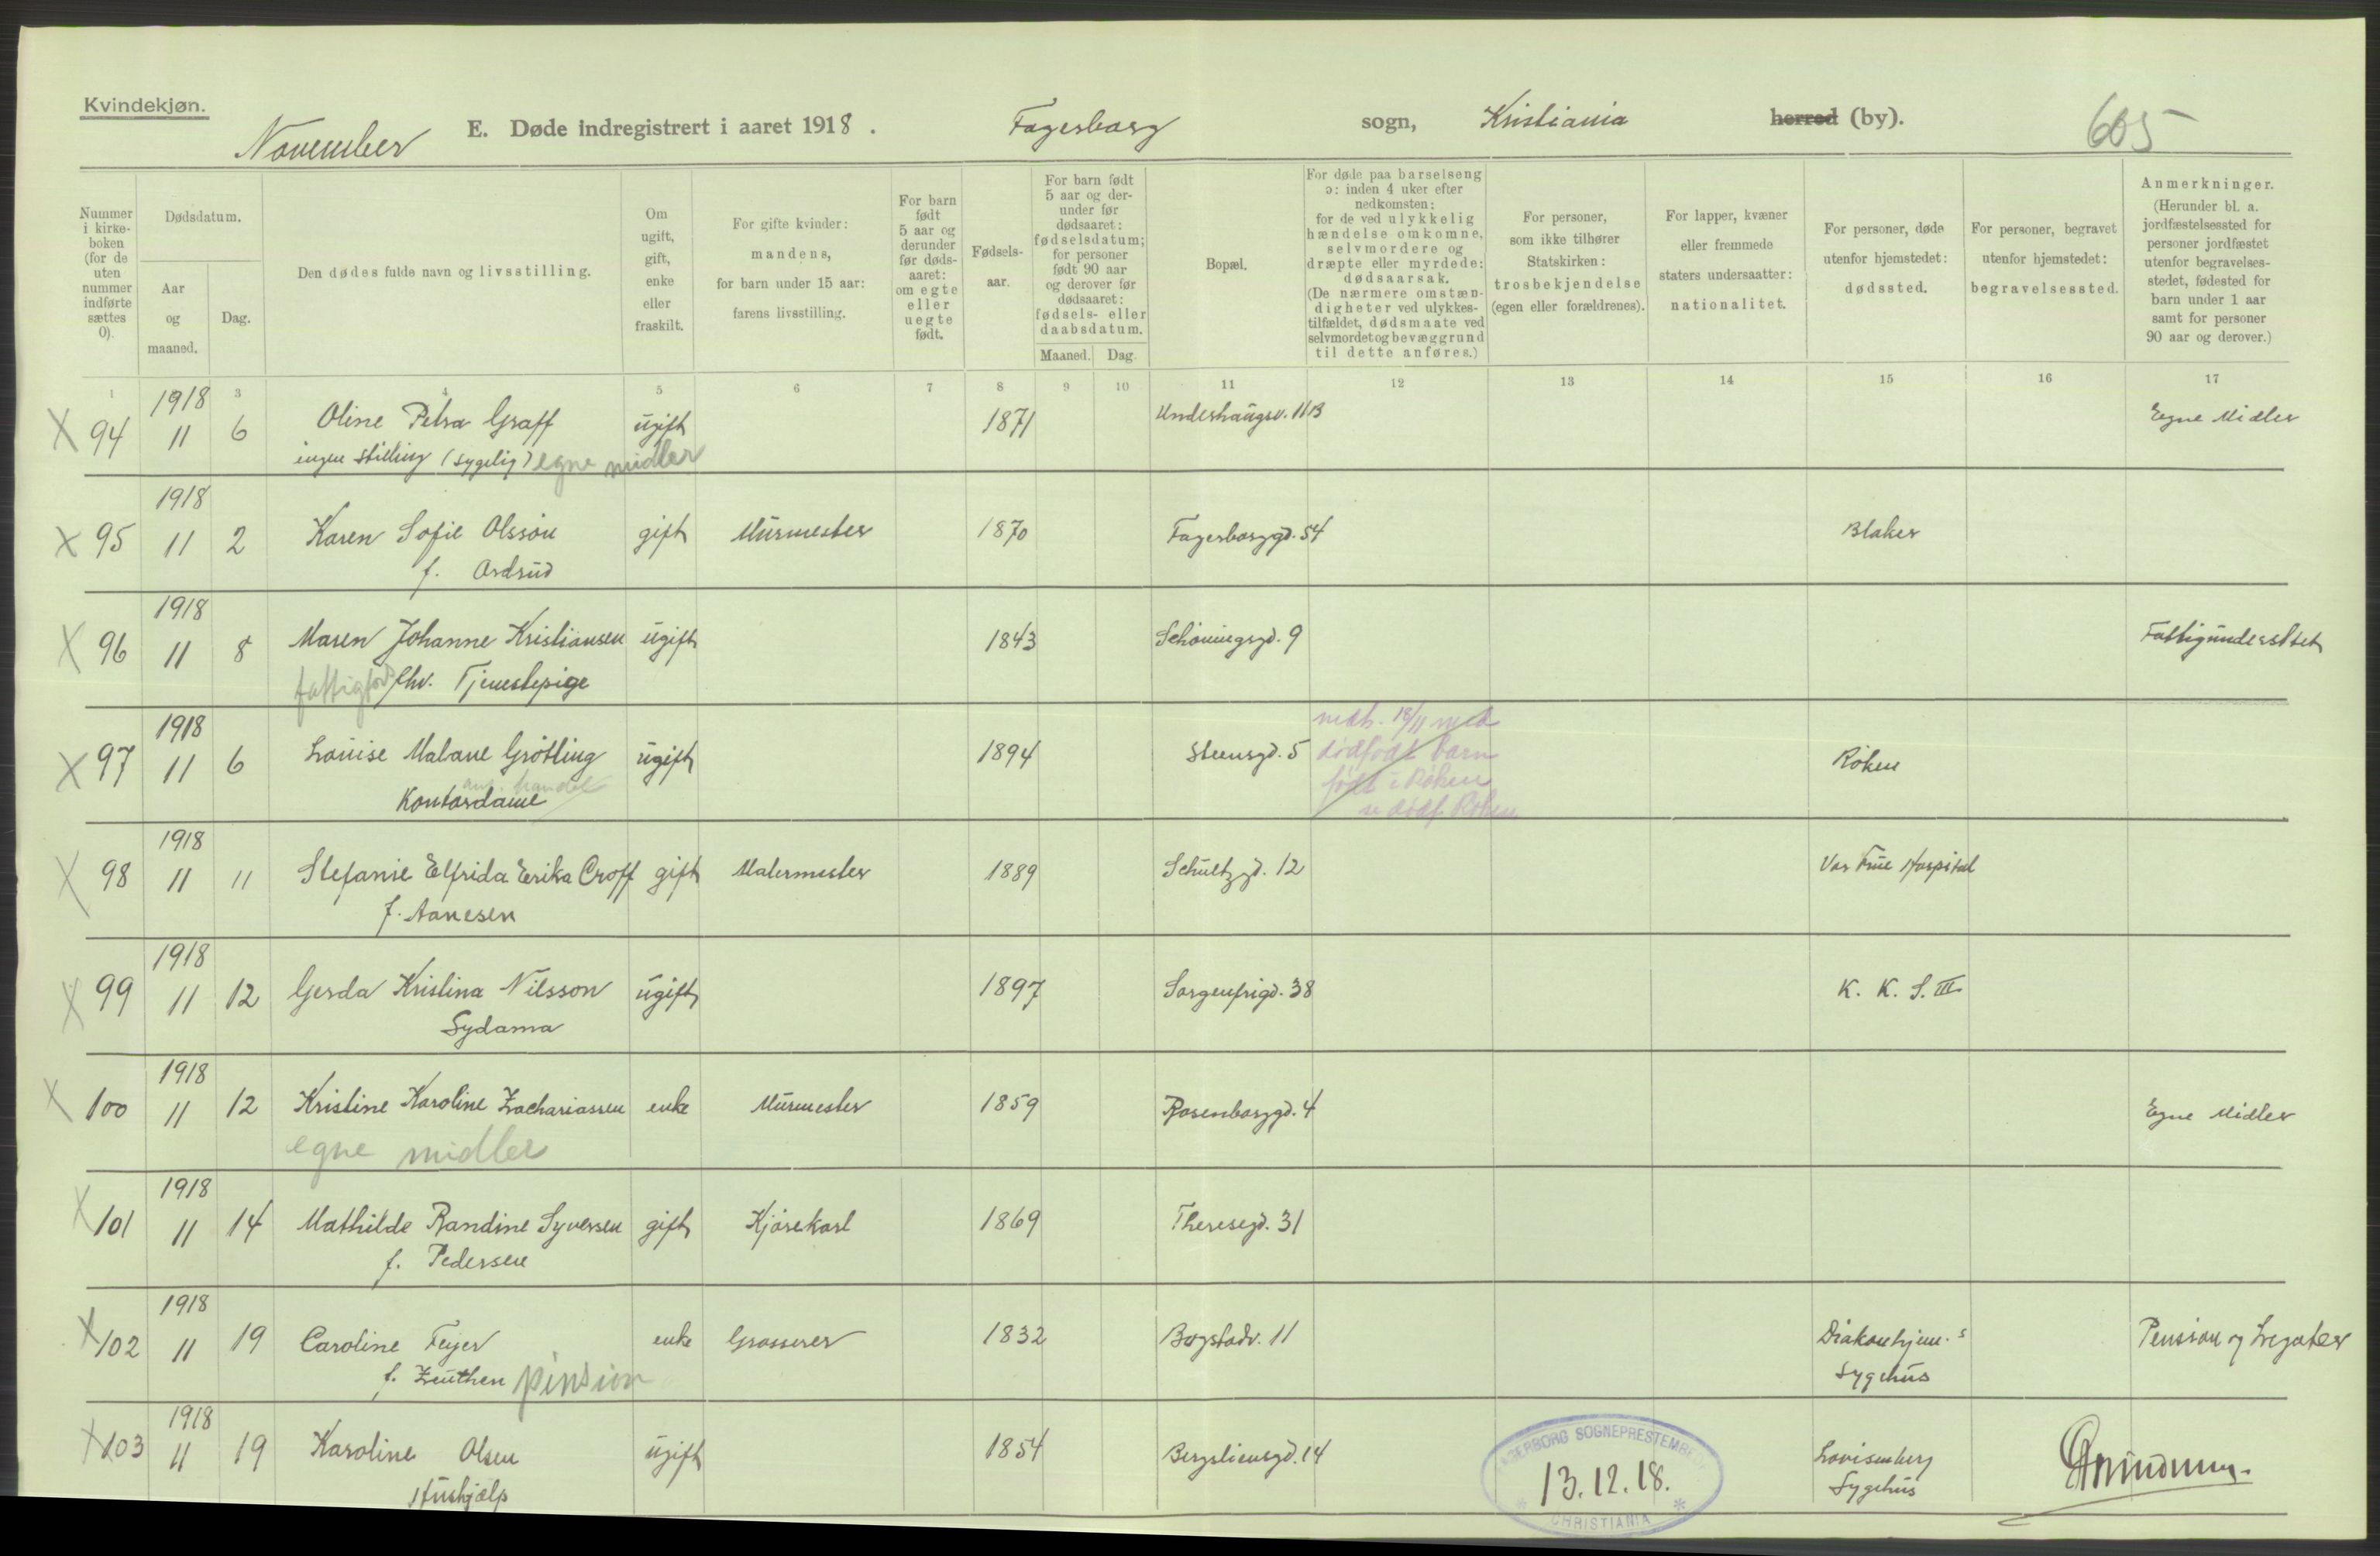 Kvindekjøn.
November E. Døde indregistrert i aaret 1918. Fagerborg sogn, Kristiania herred (by). 605
Nummer i kirke-boken (for de uten nummer indførte sættes 0).
Dødsdatum.
Aar og maaned.
Dag.
Den dødes fulde navn og livsstilling.
Om ugift, gift, enke eller fraskilt.
For gifte kvinder: mandens, for barn under 15 aar: farens livsstilling.
For barn født 5 aar og derunder før døds-aaret: om egte eller uegte født.
Fødsels-aar.
For barn født 5 aar og der-under før dødsaaret: fødselsdatum; for personer født 90 aar og derover før dødsaaret: fødsels- eller daabsdatum.
Maaned. Dag.
Bopæl.
For døde paa barselseng ɔ: inden 4 uker efter nedkomsten; for de ved ulykkelig hændelse omkomne, selvmordere og dræpte eller myrdede: dødsaarsak. (De nærmere omstæn-digheter ved ulykkes-tilfældet, dødsmaate ved selvmordet og bevæggrund til dette anføres.)
For personer, som ikke tilhører Statskirken: trosbekjendelse (egen eller forældrenes).
For lapper, kvæner eller fremmede staters undersaatter: nationalitet.
For personer, døde utenfor hjemstedet: dødssted.
For personer, begravet utenfor hjemstedet: begravelsessted.
Anmerkninger. (Herunder bl. a. jordfæstelsessted for personer jordfæstet utenfor begravelses-stedet, fødested for barn under 1 aar samt for personer 90 aar og derover.)
1 3 4 5 6 7 8 9 10 11 12 13 14 15 16 17
1918
X 94 11 6 Oline Petra Graff ugift 1871 Underhaugsv. 11B Egne Midler
ingen stilling (sygelig) egne midler
1918
X 95 11 2 Karen Sofie Olsson gift Murmester 1870 Fagerborggd. 54 Blaker
f. Ordrud
1918
X 96 11 8 Maren Johanne Kristiansen ugift 1843 Schøningsgd. 9 Fattigunderstøt
fattigfors fhv. Tjenestepige
1918
X 97 11 6 Louise Malane Grøtling ugift 1894 Steensgd. 5 Røken
ans. handel
Kontordame
nedk. 18/11 med
dødfødt barn
født i Røken
se dødf. Røken
1918
X 98 11 11 Stefanie Elfrida Erika Croff gift Malermester 1889 Schultzgd. 12 Vor Frue Hospital
f. Aanesen
1918
X 99 11 12 Gerda Kristina Nilsson ugift 1897 Sorgenfrigd. 38 K. K. S. III
Sydama
1918
X 100 11 12 Kristine Karoline Zachariassen enke Murmester 1859 Rosenborggd. 4 Egne Midler
egne midler
1918
X 101 11 14 Mathilde Randine Syversen gift Kjørekarl 1869 Theresegd. 31
f. Pedersen
1918
X 102 11 19 Caroline Feyer enke Grosserer 1832 Bogstadv. 11 Diakonhjem.s Pension og Legater
f. Zeuthen pension Sygehus
1918
X 103 11 19 Karoline Olsen ugift 1854 Bergsliensgd. 14 Lovisenberg
Hushjælp Sygehus
FAGERBORG SOGNEPRESTEMBEDE
13.12.18.
* CHRISTIANIA *